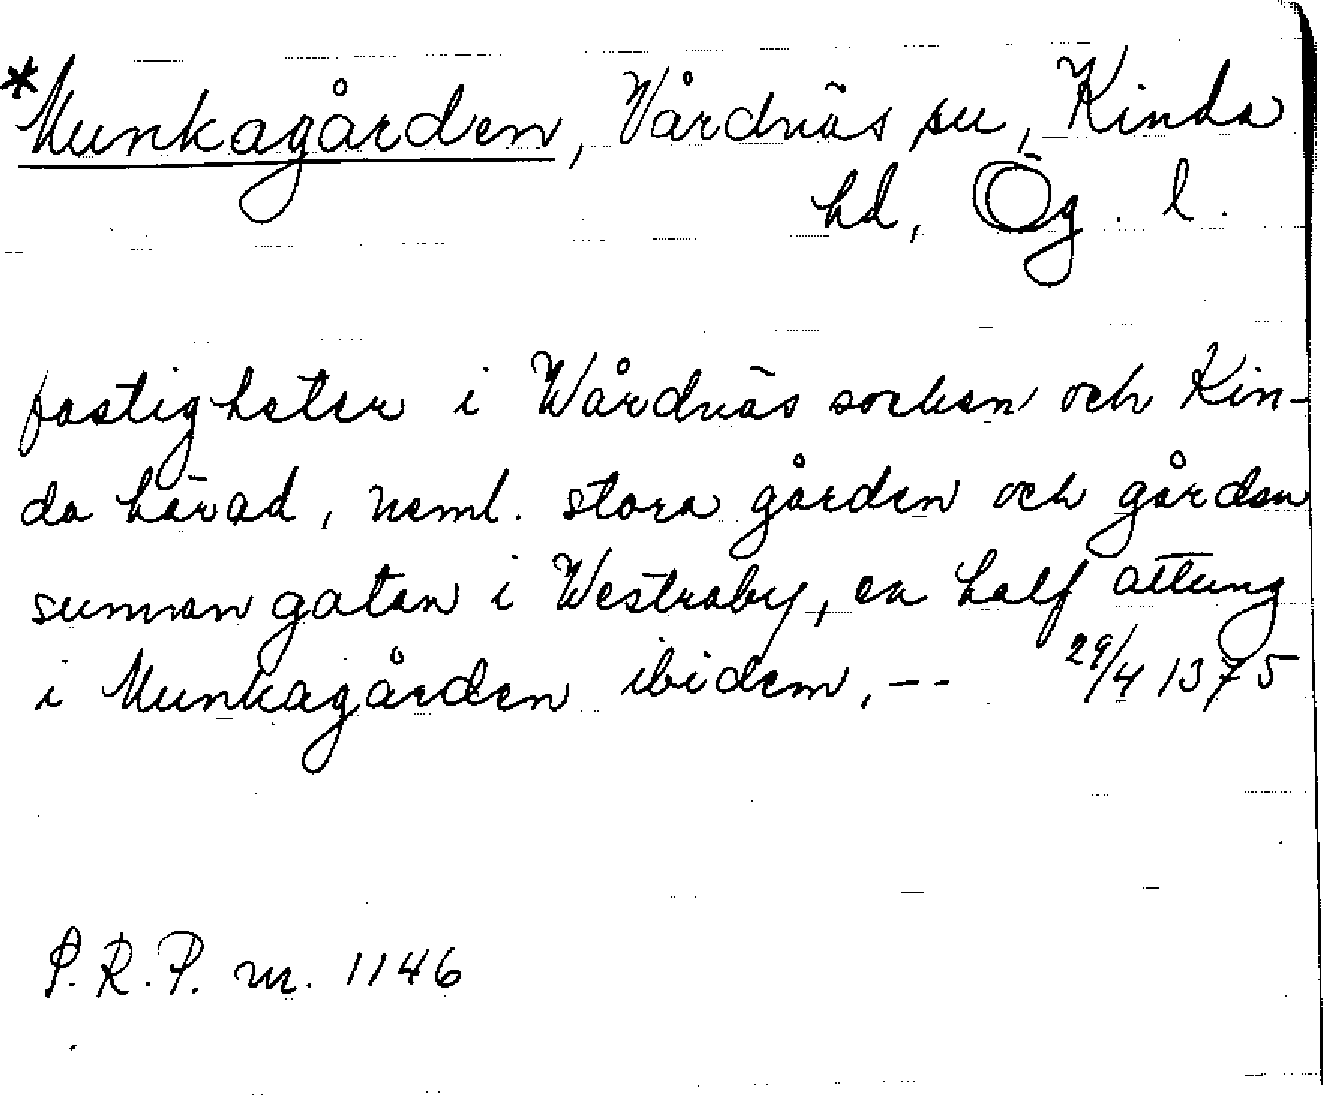 *Munkagården, Vårdnäs sn, Kinda
hd, Ög. l.
fastigheter i Wårdnäs socken och Kin-
da härad, neml. stora gården och gården
sunnan gatan i Westraby, en half attung
i Munkagården ibidem, -- 29/4 1375
P.R.P. nr. 1146